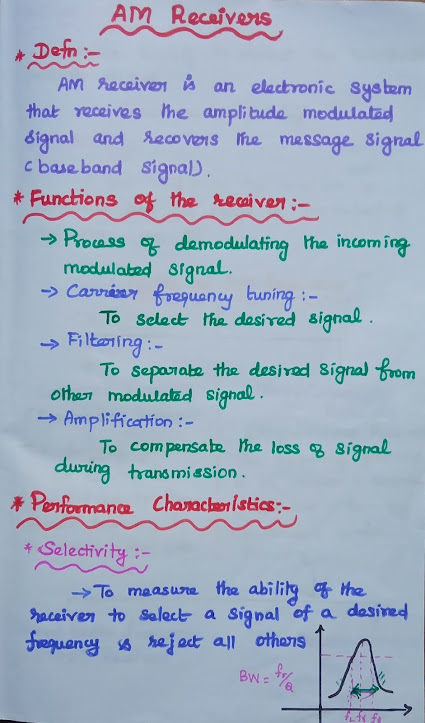 AM Receivers
* Defn :-
AM receiver is an electronic system
that receives the amplitude modulated
signal and recovers the message signal
(baseband signal).
* Functions of the receiver:-
→ Process of demodulating the incoming
modulated signal.
→ Carrier frequency tuning :-
To select the desired signal.
→ Filtering :-
To separate the desired signal from
other modulated signal.
→ Amplification :-
To compensate the loss of signal
during transmission.
* Performance Characteristics:-
* Selectivity :-
→ To measure the ability of the
receiver to select a signal of a desired
frequency is reject all others
BW = fr/Q
fL fr fH